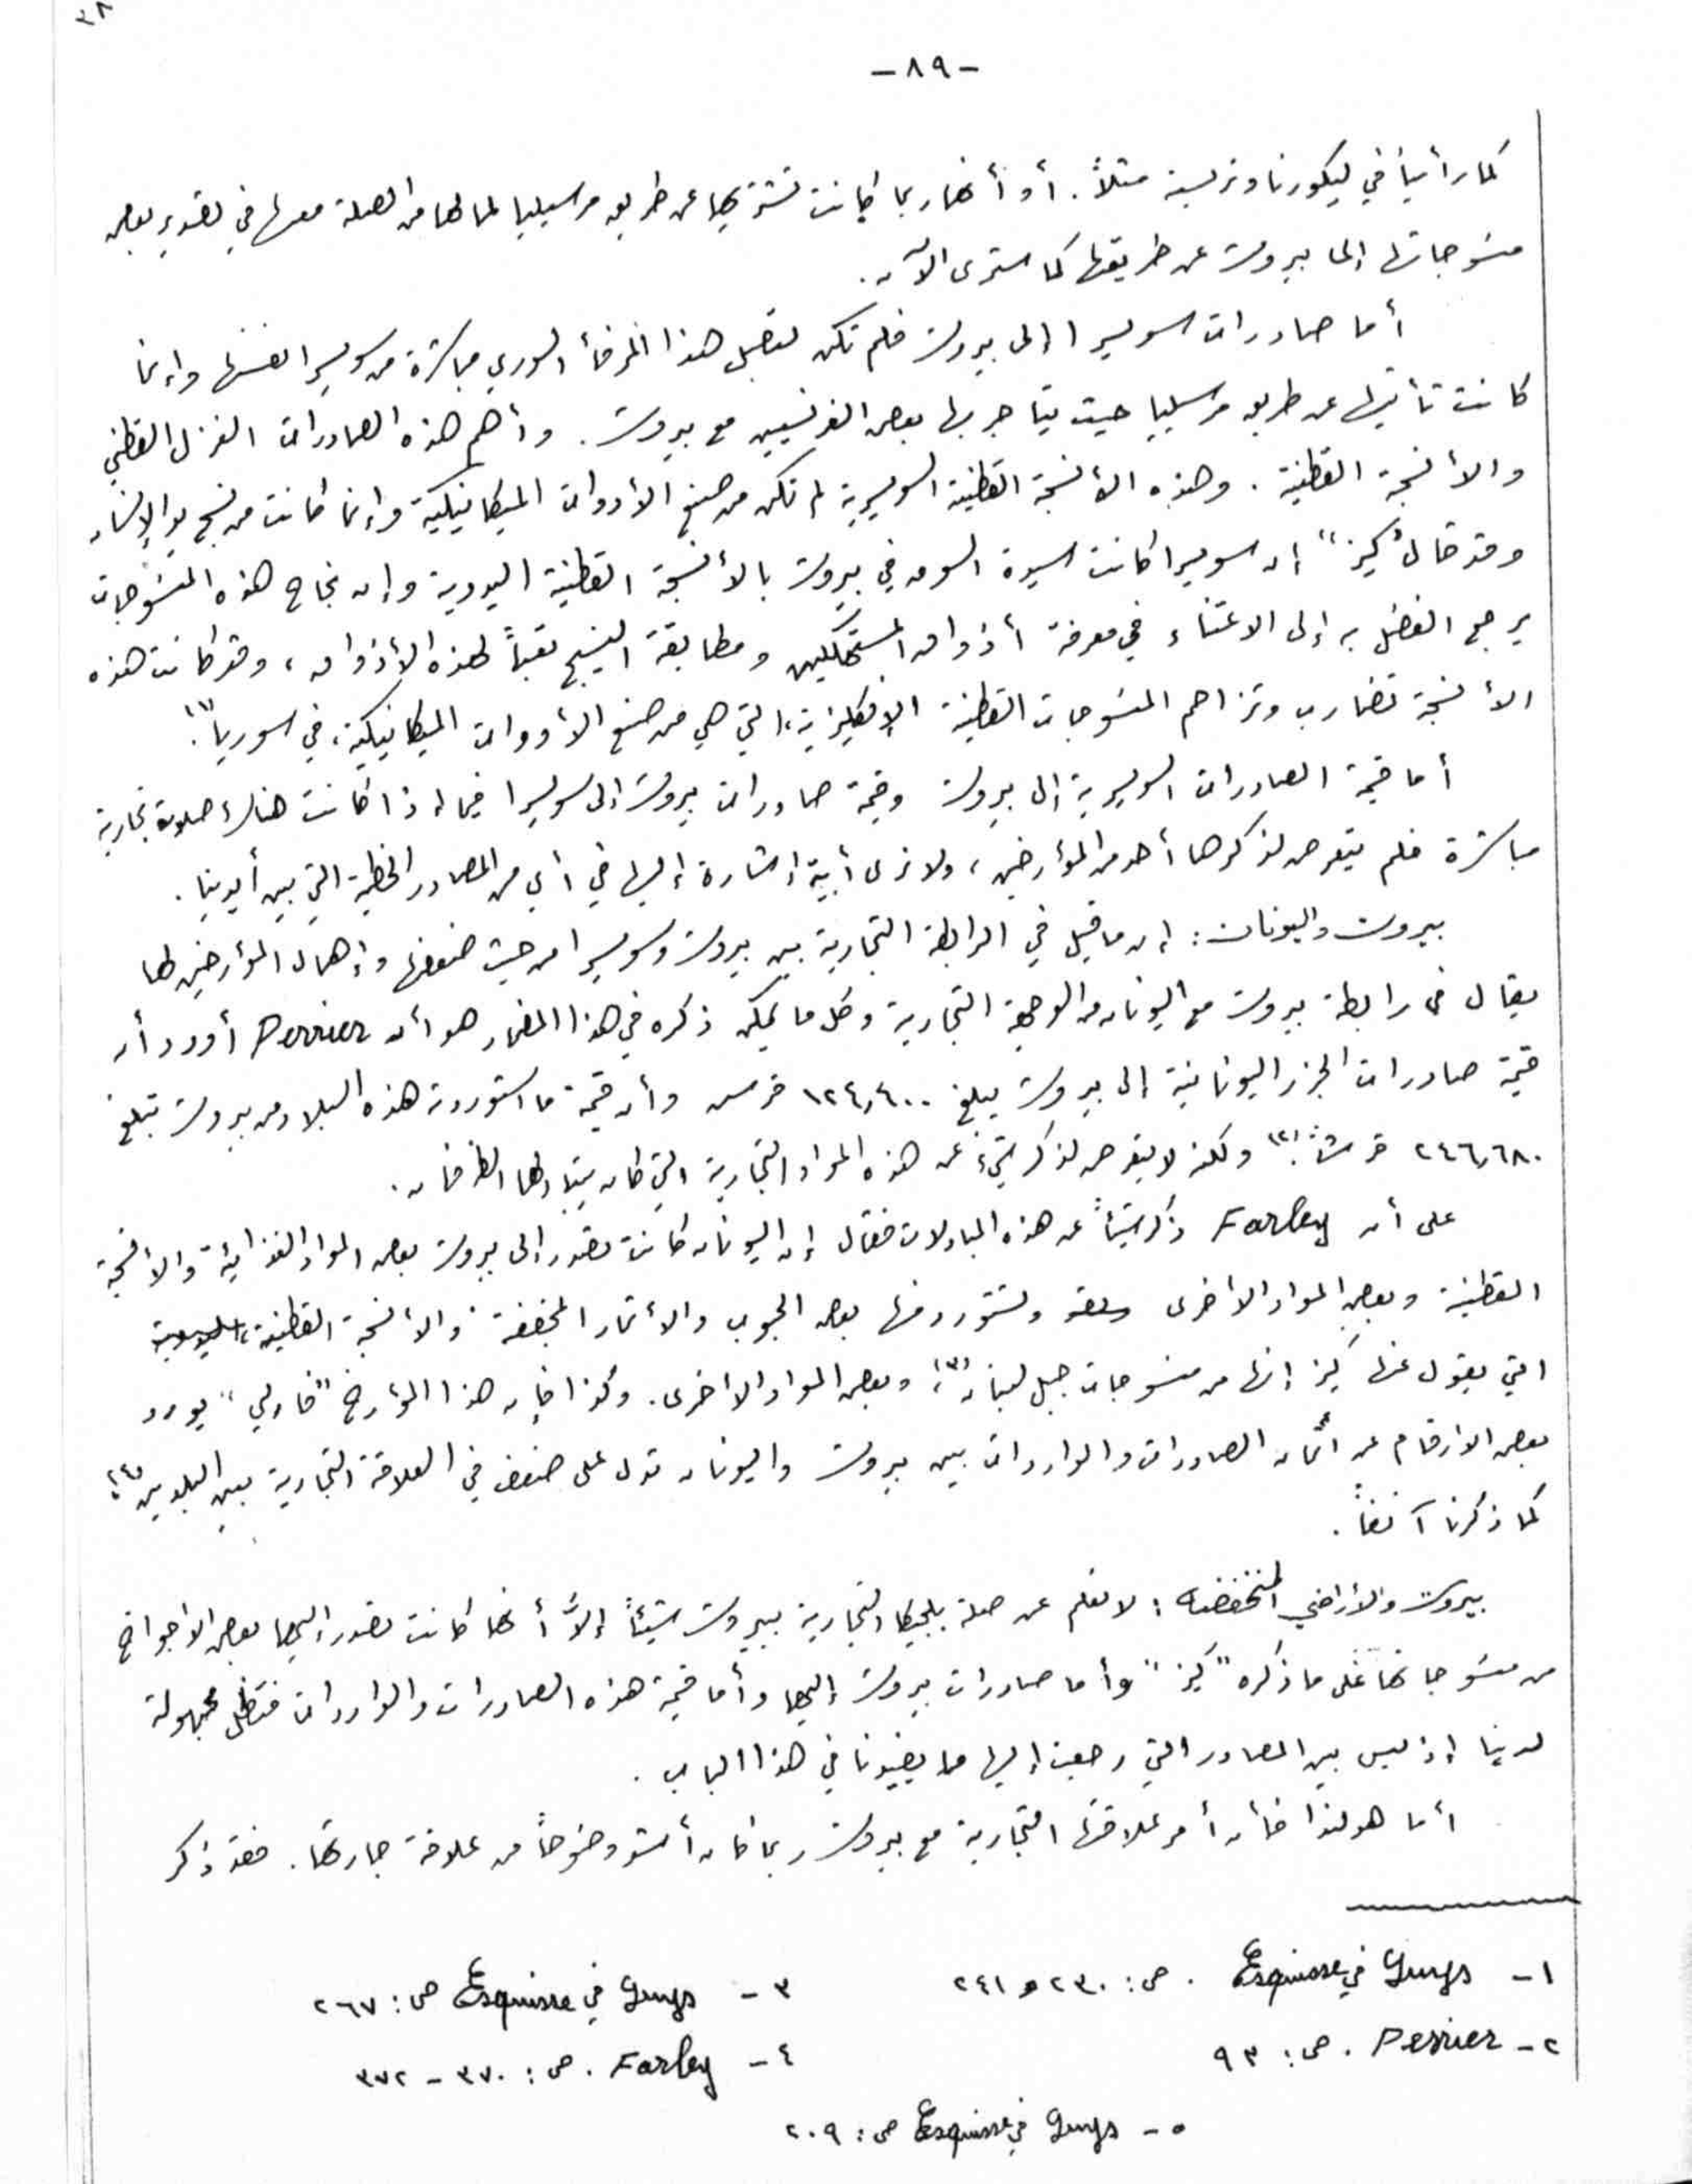 ٣٨
-٨٩-
كما رأينا في ليكورنا وتريسته مثلاً. أو أنها ربما كانت تشتريها عن طريق مرسيليا لما لها من الصلة معها في تصدير بعض
منسوجاتها إلى بيروت عن طريقها كما سنرى الآن.
أما صادرات سويسرا إلى بيروت فلم تكن لتصل هذا المرفأ السوري مباشرة من سويسرا نفسها وإنما
كانت تأتيها عن طريق مرسيليا حيث يتاجر بها بعض الفرنسيين مع بيروت. وأهم هذه الصادرات الغزل القطني
والأنسجة القطنية. وهذه الأنسجة القطنية السويسرية لم تكن من صنع الأدوات الميكانيكية وإنما كانت من نسج يد الإنسان
وقد قال "كيز" إن سويسرا كانت سيدة السوق في بيروت بالأنسجة القطنية اليدوية وإن نجاح هذه المنسوجات
يرجع الفضل به إلى الاعتناء في معرفة أذواق المستهلكين ومطابقة النسيج تبعاً لهذه الأذواق، وقد كانت هذه
الأنسجة تضارب وتزاحم المنسوجات القطنية الإنكليزية، التي هي من صنع الأدوات الميكانيكية، في سوريا (١).
أما قيمة الصادرات السويسرية إلى بيروت وقيمة صادرات بيروت إلى سويسرا فيما إذا كانت هناك صلات تجارية
مباشرة فلم يتعرض لذكرها أحد من المؤرخين، ولا نرى أية إشارة إليها في أي من المصادر الخطية التي بين أيدينا.
بيروت واليونان: إن ما قيل في الرابطة التجارية بين بيروت وسويسرا من حيث ضعفها وإهمال المؤرخين لها
يقال في رابطة بيروت مع اليونان من الوجهة التجارية وكل ما يمكن ذكره في هذا المضمار هو أن Perrier أورد أن
قيمة صادرات الجزر اليونانية إلى بيروت يبلغ ١٢٤,٤٠٠ قرس وأن قيمة ما استوردته هذه البلاد من بيروت تبلغ
٢٤٦,٦٨٠ قرشاً (٢) ولكنه لا يتعرض لذكر شيء عن هذه المواد التجارية التي كان يتبادلها الطرفان.
على أن Farley ذكر شيئاً عن هذه المبادلات فقال إن اليونان كانت تصدر إلى بيروت بعض المواد الغذائية والأنسجة
القطنية وبعض المواد الأخرى وتستورد منها بعض الحبوب والأثمار المجففة والأنسجة القطنية،
التي يقول عنها كيز إنها من منسوجات جبل لبنان (٣)، وبعض المواد الأخرى. وكذا فإن هذا المؤرخ "فارلي" يورد
بعض الأرقام عن أثمان الصادرات والواردات بين بيروت واليونان تدل على ضعف في العلاقة التجارية بين البلدين (٤)،
كما ذكرنا آنفاً.
بيروت والأراضي المنخفضة: لا نعلم عن صلة بلجيكا التجارية ببيروت شيئاً إلاّ أنها كانت تصدر إليها بعض الأجواخ
من منسوجاتها على ما ذكره "كيز" وأما صادرات بيروت إليها وأما قيمة هذه الصادرات والواردات فتظل مجهولة
لدينا إذ ليس بين المصادر التي رجعت إليها ما يفيدنا في هذا الباب.
أما هولندا فأن أمر علاقتها التجارية مع بيروت ربما كان أشد وضوحاً من علاقة جارتها. فقد ذكر
١- Guys في Esquisse . ص: ٢٣٠ و ٢٤١
٢- Perrier . ص: ٩٣
٣- Guys في Esquisse ص: ٢٦٧
٤- Farley . ص: ٣٧٠ - ٣٧٢
٥- Guys في Esquisse ص: ٢٠٩